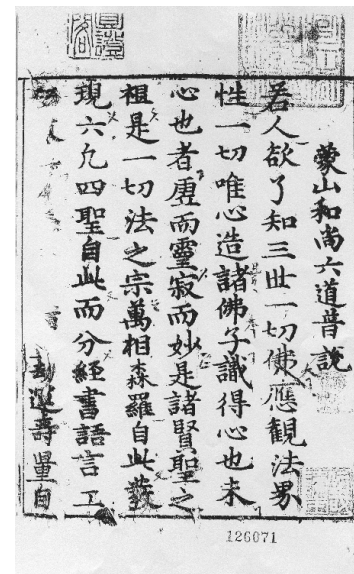 蒙山和尚六道普說
若人欲了知三世一切佛應觀法界
性一切唯心造諸佛子識得心也未
心也者虛而靈寂而妙是諸賢聖之
祖是一切法之宗萬相森羅自此發
現六凡四聖自此而分經書語言工
劫選壽量自
126071